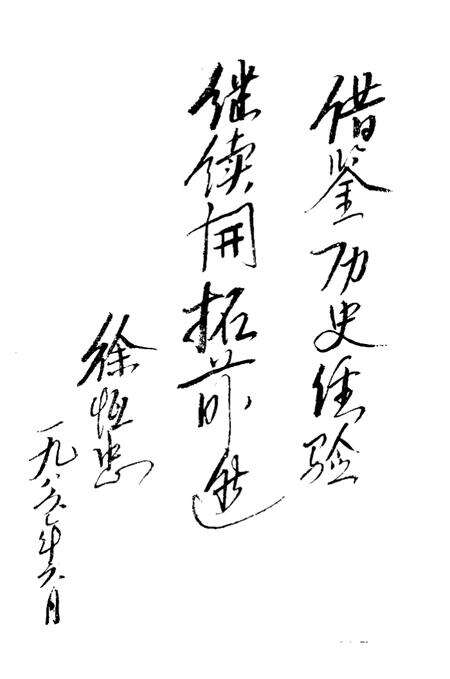 借鉴历史经验
继续开拓前进
徐恒忠
一九八六年六月